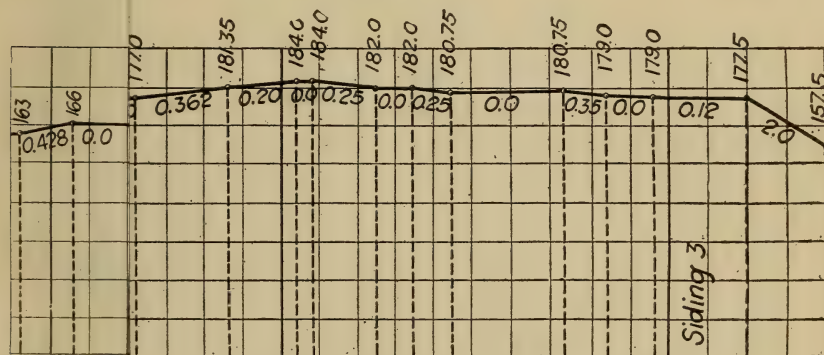 163
166
177.0
181.35
184.0
184.0
182.0
182.0
180.75
180.75
179.0
179.0
177.5
157.5
0.428
0.0
0.362
0.20
0.0
0.25
0.0
0.25
0.0
0.35
0.0
0.12
2.0
Siding 3